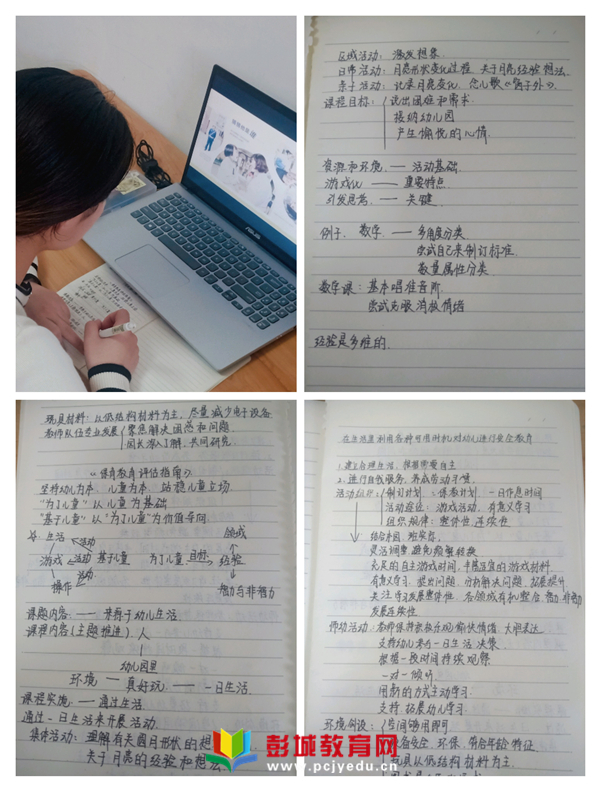 ASUS
区域活动：激发想象
日常活动：月亮形状变化过程 关于月亮经验想法
亲子活动：记录月亮变化，念儿歌《窗子外》
课程目标：说出困难和需求
接纳幼儿园
产生愉悦的心情
资源和环境 —— 活动基础
游戏化 —— 重要特点
引发思考 —— 关键
例子：数学 —— 多角度分类
尝试自己来制订标准
数量属性分类
数学课：基本唱准音阶
尝试克服消极情绪
经验是多维的
玩具材料：以低结构材料为主，尽量减少电子设备
教师队伍专业发展 聚焦解决困惑和问题
园长深入了解，共同研究
《保育教育评估指南》
坚持幼儿为本：儿童为本 站稳儿童立场
"为了儿童"以儿童为基础
"基于儿童"以"为了儿童"为价值导向
生活 活动 领域
游戏 活动 基于儿童 为了儿童 目标 经验
操作 活动 智力与非智力
课题内容：—— 来源于幼儿生活
课程内容（主题推进）人
幼儿园里
环境 — 真好玩 —— 一日生活
课程实施 —— 通过生活
通过一日生活来开展活动
集体活动：理解有关圆月形状的想
关于月亮的经验和想法
在生活里利用各种可用时机对幼儿进行安全教育
1.建立合理生活，根据需要自主
2.进行自我服务，养成劳动习惯
活动组织：制订计划：保教计划 一日作息时间
活动途径：游戏活动，有意义学习
组织规律：整体性 连续性
结合本园、班实际
灵活调整 避免频繁转换
充足的自主游戏时间，丰富适宜的游戏材料
有意义学习，提出问题，分析解决问题，拓展提升
关注学习发展整体性，各领域有机整合，智力 非智力
发展连续性
师幼活动：教师保持积极乐观愉快情绪 大胆表达
支持幼儿参与一日生活决策
根据一段时间持续观察
一对一倾听
用新的方式主动学习
支持 拓展幼儿学习
环境创设：空间够用即可
安全 环保，符合年龄特征
玩具以低结构材料为主
彭城教育网
www.pcjyedu.cn